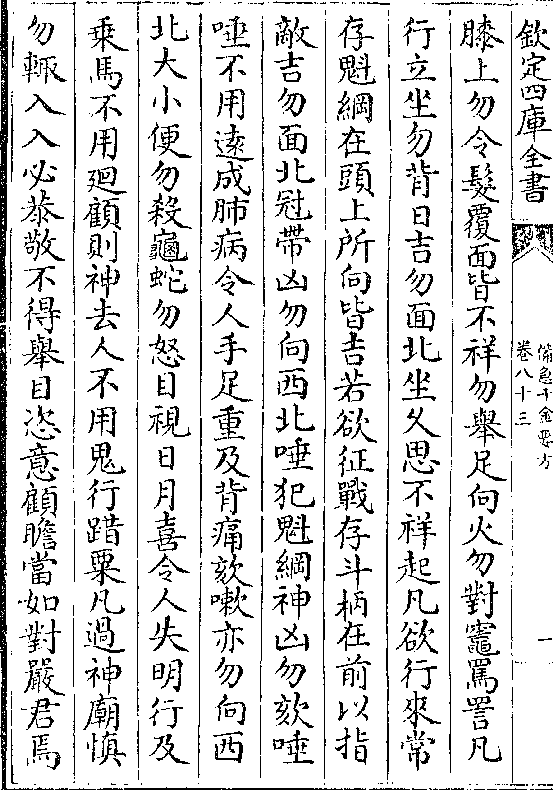 欽定四庫全書
備急千金要方
卷八十三
一
膝上勿令髮覆面皆不祥勿舉足向火勿對竈罵詈凡
行立坐勿背日吉勿面北坐久思不祥起凡欲行來常
存魁綱在頭上所向皆吉若欲征戰存斗柄在前以指
敵吉勿面北冠帶凶勿向西北唾犯魁綱神凶勿欬唾
唾不用遠成肺病令人手足重及背痛欬嗽亦勿向西
北大小便勿殺龜蛇勿怒目視日月喜令人失明行及
乗馬不用廻顧則神去人不用鬼行踖粟凡過神廟慎
勿輙入入必恭敬不得舉目恣意顧瞻當如對嚴君焉